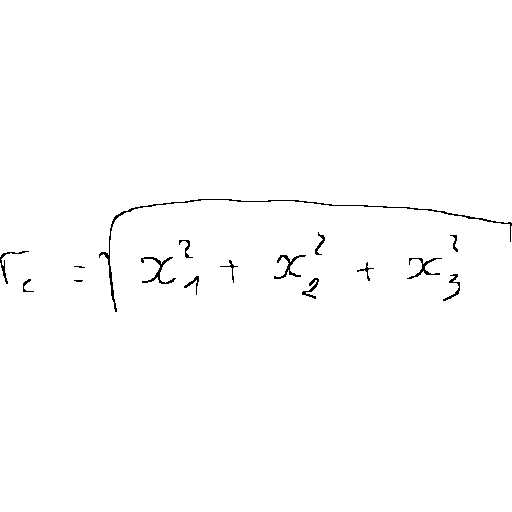 r_c = \sqrt{x_1^2 + x_2^2 + x_3^2}